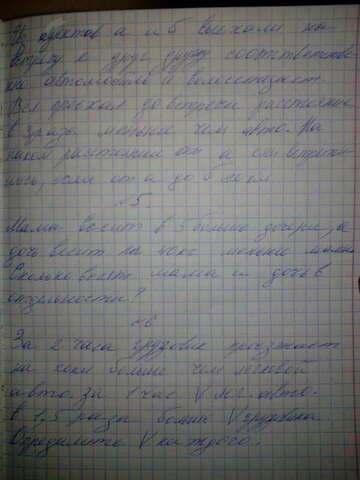 Из пунктов а и б выехали на-
встречу к друг другу соответственно
автомобиль и велосипедист
Вел проехал до встречи расстояние
в раза меньше чем авто. На
каком расстоянии от а они встрети-
лись, если от а до б км
№5.
Мама весит в 5 больше дочери, а
дочь весит на меньше мамы
Сколько весит мама и дочь в
отдельности?
№6
За 2 часа грузовик проезжает
на больше чем легковой
авто за 1 час V лег. авто.
в 1,5 раза больше V грузовика
Определите V каждого.